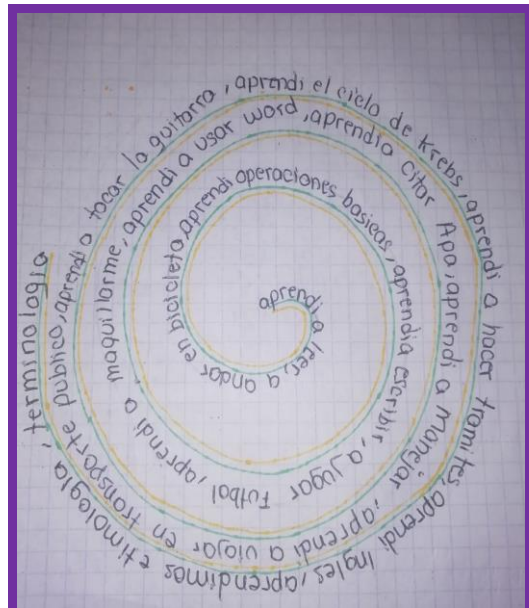 aprendi a leer, a andar en bicicleta, aprendi operaciones basicas, aprendi a escribir, a jugar futbol, aprendi a maquillarme, aprendi a usar word, aprendi a citar Apa, aprendi a manejar, aprendi a viajar en transporte publico, aprendi a tocar la guitarra, aprendi el ciclo de Krebs, aprendi a hacer tramites, aprendi ingles, aprendimos etimologia, terminologia